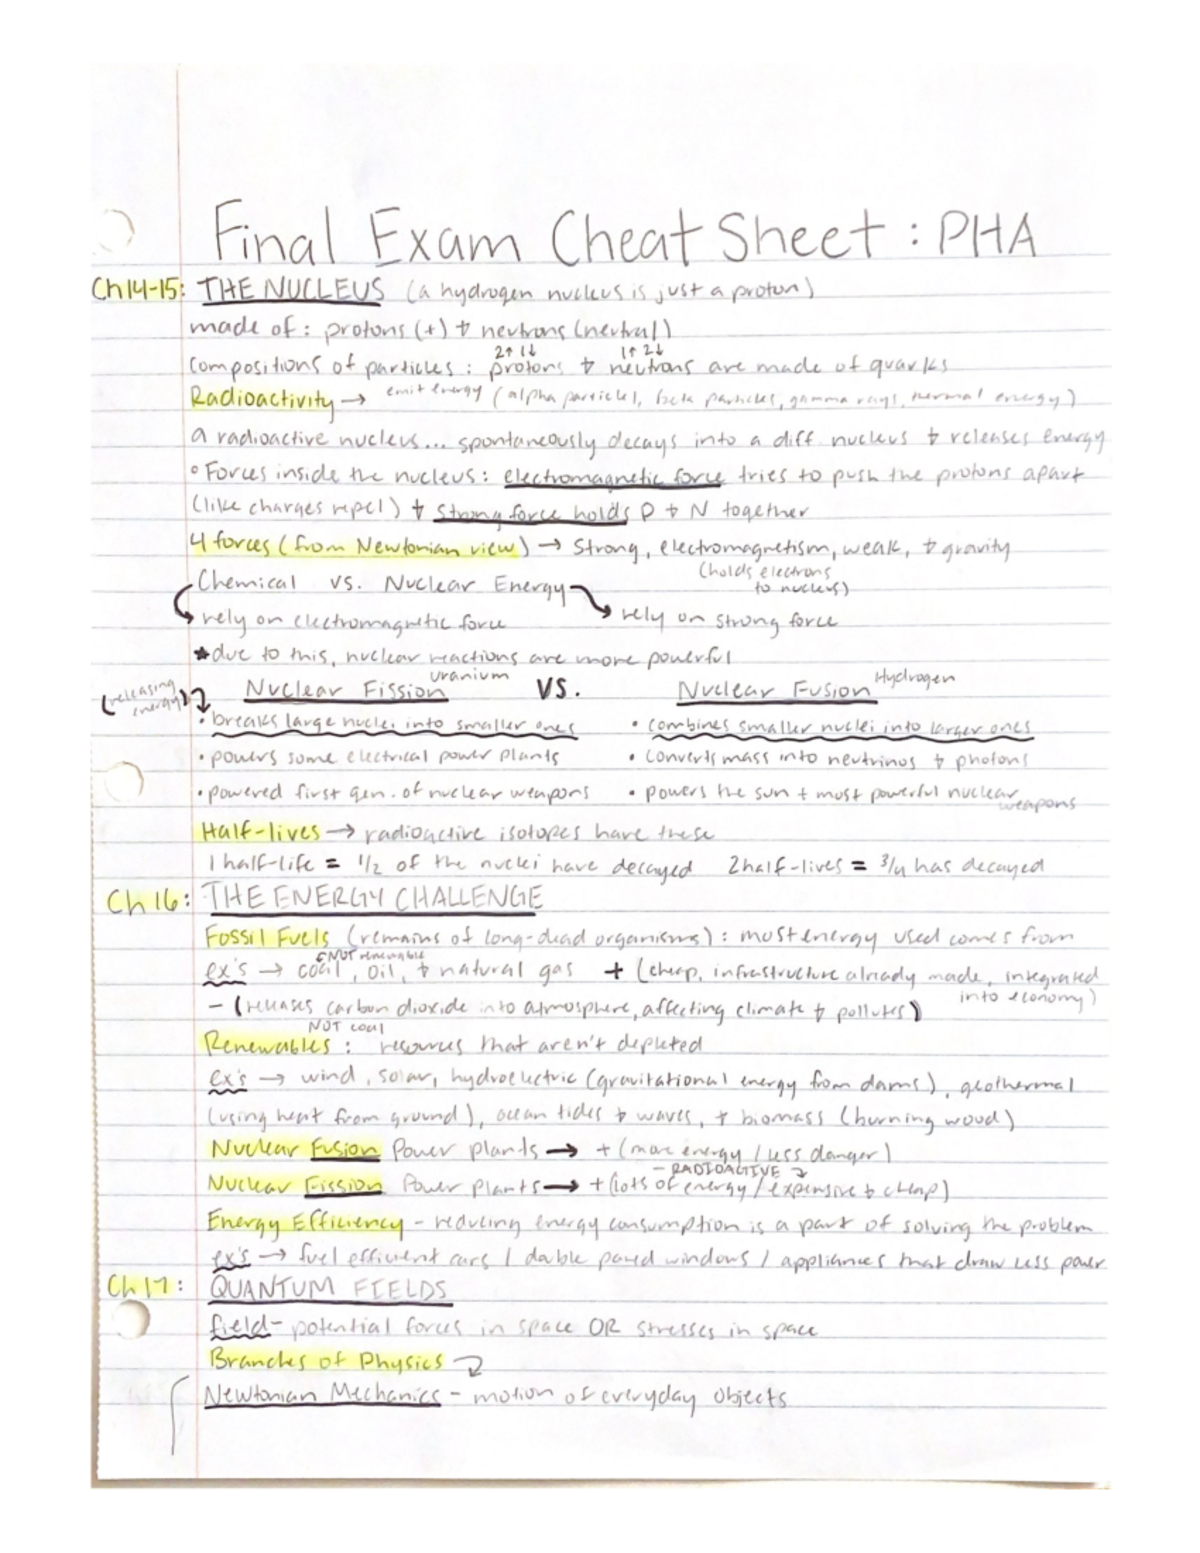 Final Exam Cheat Sheet : PHA
Ch 14-15: THE NUCLEUS (a hydrogen nucleus is just a proton)
made of : protons (+) + neutrons (neutral)
2↑ 1↓ 1↑ 2↓
compositions of particles : protons + neutrons are made of quarks
Radioactivity → emit energy (alpha particles, beta particles, gamma rays, thermal energy)
a radioactive nucleus... spontaneously decays into a diff. nucleus + releases energy
° Forces inside the nucleus : electromagnetic force tries to push the protons apart
(like charges repel) + strong force holds P + N together
4 forces (from Newtonian view) → strong, electromagnetism, weak, + gravity
(holds electrons
to nucleus)
Chemical vs. Nuclear Energy
rely on electromagnetic force rely on strong force
★ due to this, nuclear reactions are more powerful
(releasing energy) Nuclear Fission uranium VS. Nuclear Fusion Hydrogen
• breaks large nuclei into smaller ones • combines smaller nuclei into larger ones
• powers some electrical power plants • converts mass into neutrinos + photons
• powered first gen. of nuclear weapons • powers the sun + most powerful nuclear weapons
Half-lives → radioactive isotopes have these
1 half-life = 1/2 of the nuclei have decayed 2 half-lives = 3/4 has decayed
Ch 16: THE ENERGY CHALLENGE
Fossil Fuels (remains of long-dead organisms) : most energy used comes from
NOT renewable
ex's → coal, oil, + natural gas + (cheap, infrastructure already made, integrated
into economy)
- (releases carbon dioxide into atmosphere, affecting climate + pollutes)
NOT coal
Renewables : resources that aren't depleted
ex's → wind, solar, hydroelectric (gravitational energy from dams), geothermal
(using heat from ground), ocean tides + waves, + biomass (burning wood)
Nuclear Fusion Power plants → + (more energy / less danger)
- RADIOACTIVE
Nuclear Fission Power plants → + (lots of energy / expensive + cheap)
Energy Efficiency - reducing energy consumption is a part of solving the problem
ex's → fuel efficient cars / double paned windows / appliances that draw less power
Ch 17: QUANTUM FIELDS
field - potential forces in space OR stresses in space
Branches of Physics
Newtonian Mechanics - motion of everyday objects